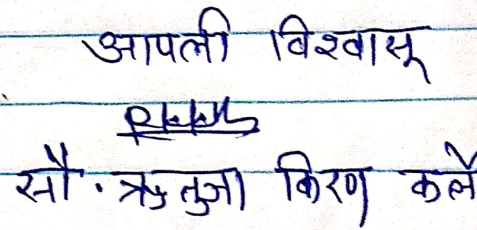 आपली विश्वासू
सौ. ऋतुजा किरण कले